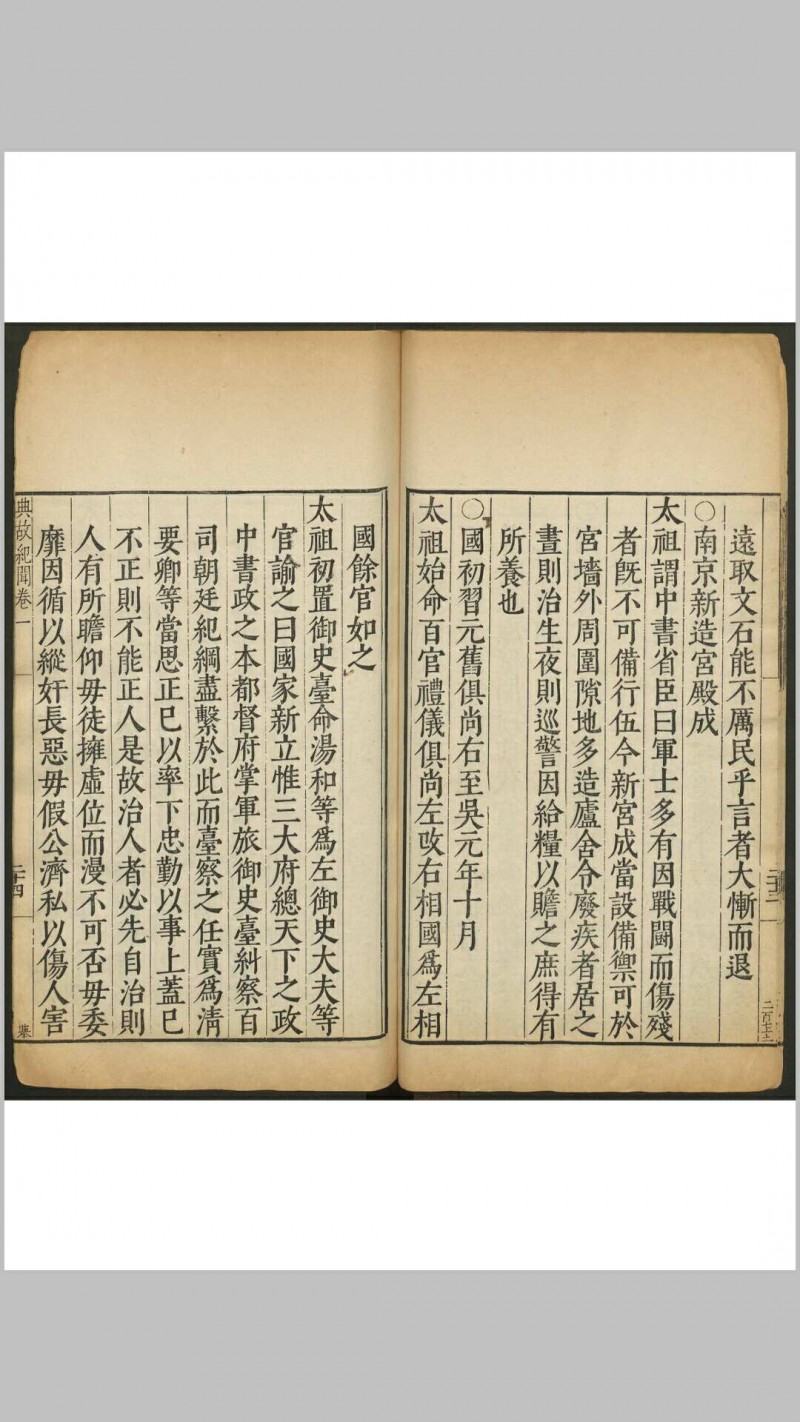 遠取文石能不厲民乎言者大慚而退
○南京新造宮殿成
太祖謂中書省臣曰軍士多有因戰鬬而傷殘
者旣不可備行伍今新宮成當設備禦可於
宮墻外周圍隙地多造廬舍令廢疾者居之
晝則治生夜則巡警因給糧以贍之庶得有
所養也
○國初習元舊俱尚右至吳元年十月
太祖始命百官禮儀俱尚左改右相國爲左相
國餘官如之
太祖初置御史臺命湯和等爲左御史大夫等
官諭之曰國家新立惟三大府總天下之政
中書政之本都督府掌軍旅御史臺糾察百
司朝廷紀綱盡繫於此而臺察之任實爲淸
要卿等當思正已以率下忠勤以事上蓋已
不正則不能正人是故治人者必先自治則
人有所瞻仰毋徒擁虛位而漫不可否毋委
靡因循以縱奸長惡毋假公濟私以傷人害
典故紀聞卷一
二十四